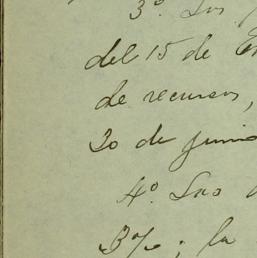 3º. Los
del 15 de En
de recursos,
30 de junio
4º. Las
3%; la